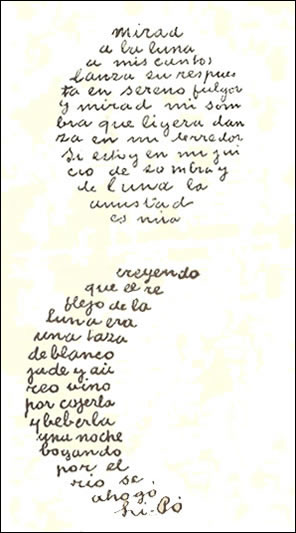 mirad
a la luna
a mis cantos
lanza su respues
ta en sereno fulgor
y mirad mi som
bra que ligera dan
za en mi derredor
si estoy en mi jui
cio de sombra y
de luna la
amistad
es mia
creyendo
que el re
flejo de la
luna era
una taza
de blanco
jade y aú
reo vino
por cojerla
y beberla
una noche
bogando
por el
rio se
ahogó
Li-Pó